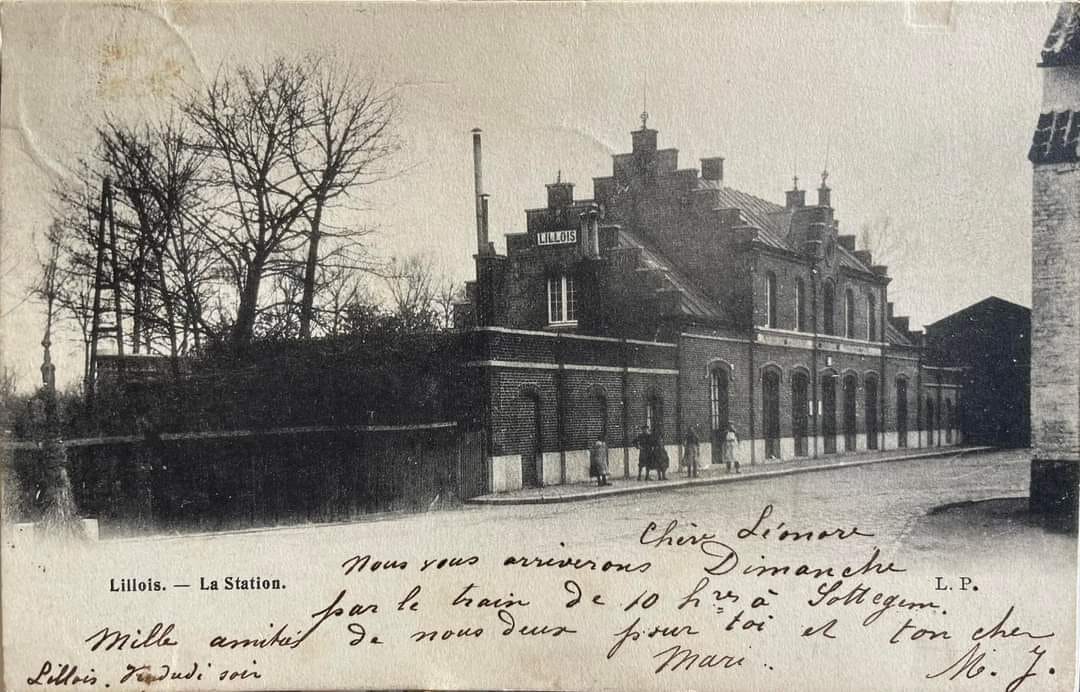 LILLOIS
Chère Léonore
Nous vous arriverons Dimanche
Lillois. — La Station.
L. P.
par le train de 10 hres à Sottegem.
Mille amitiés de nous deux pour toi et ton cher
Mari..
Lillois. Vendredi soir
M. J.